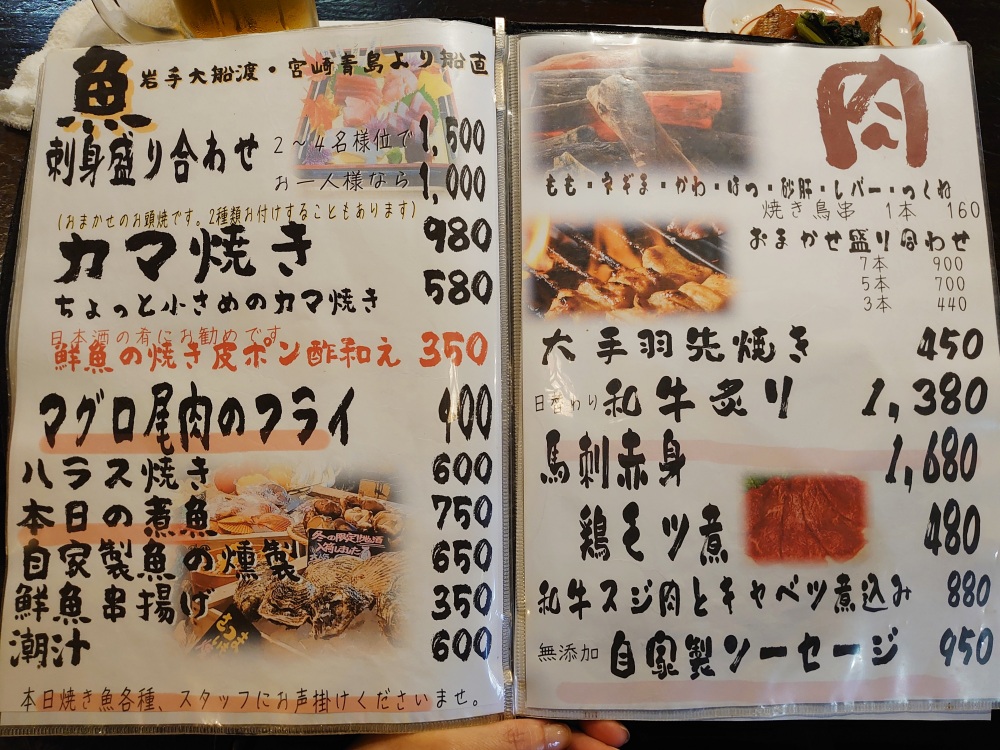 魚
岩手大船渡・宮崎青島より船直
刺身盛り合わせ 2～4名様位で 1,500
お一人様なら 1,000
(おまかせのお頭焼です。2種類お付けすることもあります)
カマ焼き 980
ちょっと小さめのカマ焼き 580
日本酒の肴にお勧めです
鮮魚の焼き皮ポン酢和え 350
マグロ尾肉のフライ 900
ハラス焼き 600
本日の煮魚 750
自家製魚の燻製 650
鮮魚串揚げ 350
潮汁 600
冬の限定地酒
入荷しました
本日焼き魚各種、スタッフにお声掛けくださいませ。
肉
もも・ネギま・かわ・はつ・砂肝・レバー・つくね
焼き鳥串 1本 160
おまかせ盛り合わせ
7本 900
5本 700
3本 440
大手羽先焼き 450
日替わり 和牛炙り 1,380
馬刺赤身 1,680
鶏モツ煮 480
和牛スジ肉とキャベツ煮込み 880
無添加 自家製ソーセージ 950